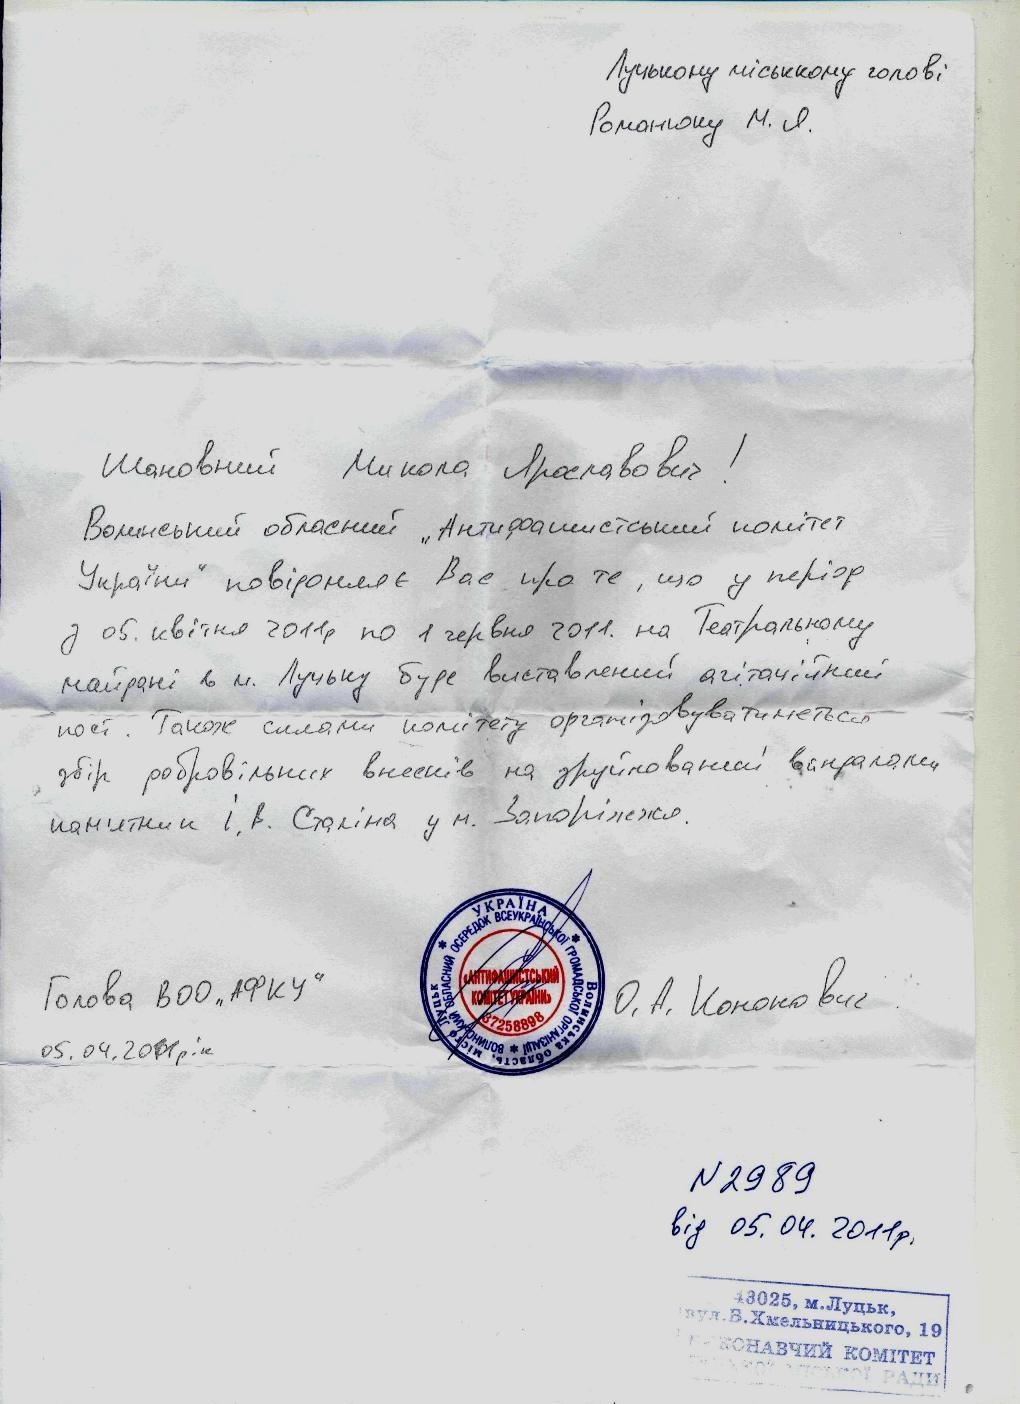 Луцькому міському голові
Романюку М. Я.
Шановний Микола Ярославович!
Волинський обласний „Антифашистський комітет
України" повідомляє Вас про те, що у період
з 05. квітня 2011р по 1 червня 2011. на Театральному
майдані в м. Луцьку буде виставлений агітаційний
пост. Також силами комітету організовуватиметься
збір добровільних внесків на зруйнований вандалами
памятник І. В. Сталіна у м. Запоріжжя.
Голова ВОО „АФКУ"
О. А. Кононович
05.04.2011р.
УКРАЇНА
Волинська область, місто Луцьк
ВОЛИНСЬКИЙ ОБЛАСНИЙ ОСЕРЕДОК ВСЕУКРАЇНСЬКОЇ ГРОМАДСЬКОЇ ОРГАНІЗАЦІЇ
«АНТИФАШИСТСЬКИЙ
КОМІТЕТ УКРАЇНИ»
37258898
N2989
від 05.04.2011р.
43025, м.Луцьк,
вул.Б.Хмельницького, 19
ВИКОНАВЧИЙ КОМІТЕТ
МІСЬКОЇ РАДИ